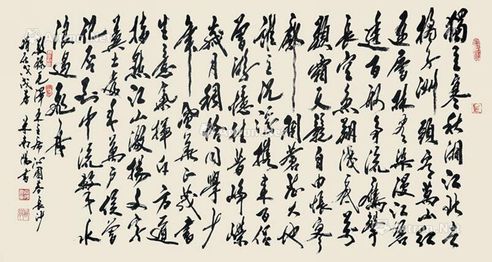 獨立寒秋湘江北去
橘子洲頭看萬山紅
遍層林盡染漫江碧
透百舸爭流鷹擊
長空魚翔淺底萬
類霜天競自由悵寥
廓問蒼茫大地
誰主沉浮攜來百侶
曾遊憶往昔崢嶸
歲月稠恰同學少
年風華正茂書
生意氣揮斥方遒
指點江山激揚文字
糞土當年萬戶侯曾
記否到中流擊水
浪遏飛舟
毛澤東主席沁園春長沙
書